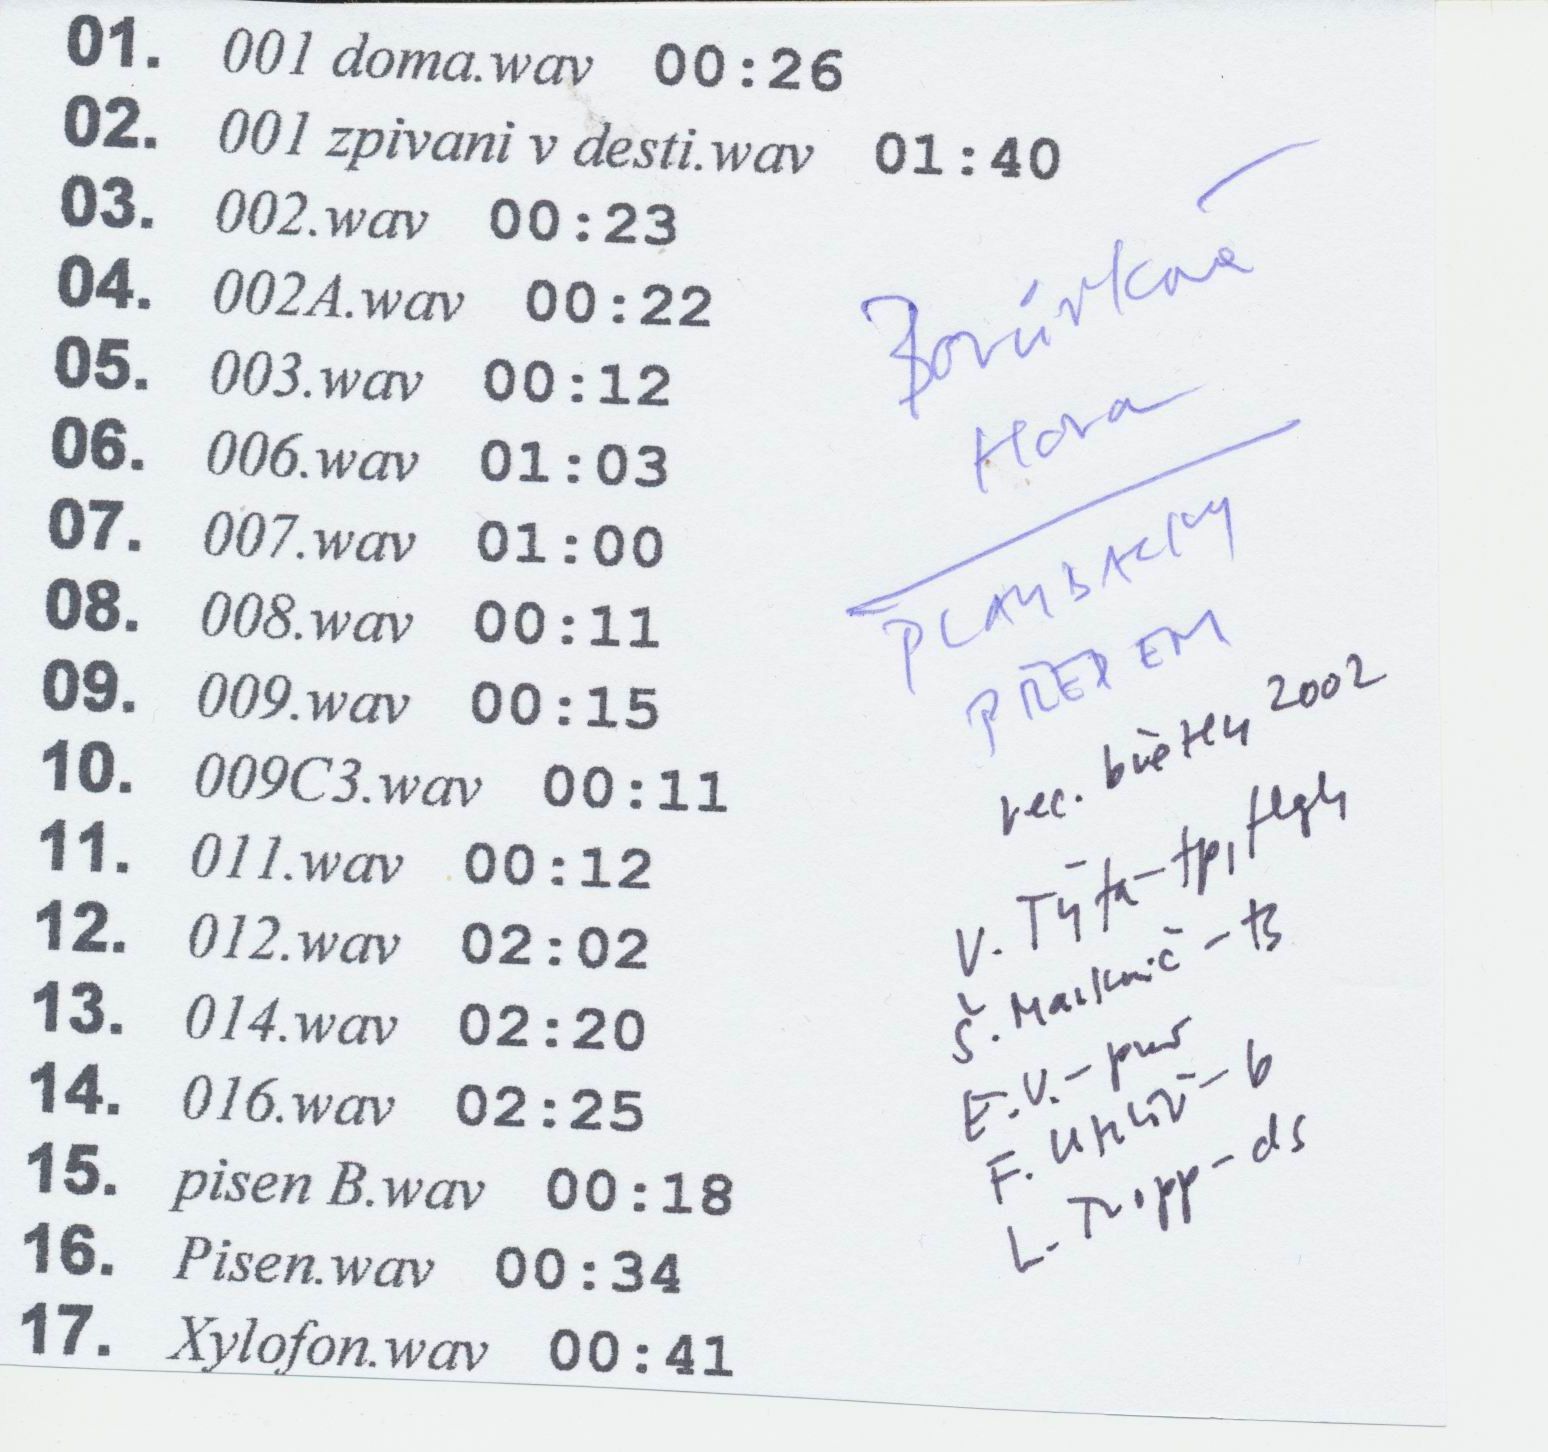 01. 001 doma.wav 00:26
02. 001 zpivani v desti.wav 01:40
03. 002.wav 00:23
04. 002A.wav 00:22
05. 003.wav 00:12
06. 006.wav 01:03
07. 007.wav 01:00
08. 008.wav 00:11
09. 009.wav 00:15
10. 009C3.wav 00:11
11. 011.wav 00:12
12. 012.wav 02:02
13. 014.wav 02:20
14. 016.wav 02:25
15. pisen B.wav 00:18
16. Pisen.wav 00:34
17. Xylofon.wav 00:41
Borůvková
Hora
PLAYBACKY
PŘEDEM
rec. květen 2002
V. Týfa - tp, flgh
Š. Markovič - ts
E.V. - pno
F. Uhlíř - b
L. Tropp - ds